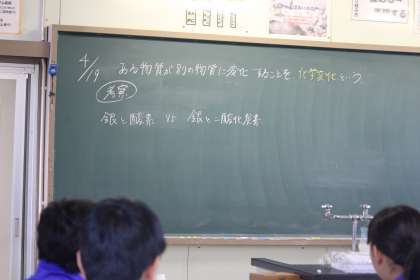 4/19 ある物質が別の物質に変化することを化学変化という
考察
銀と酸素 VS 銀と二酸化炭素